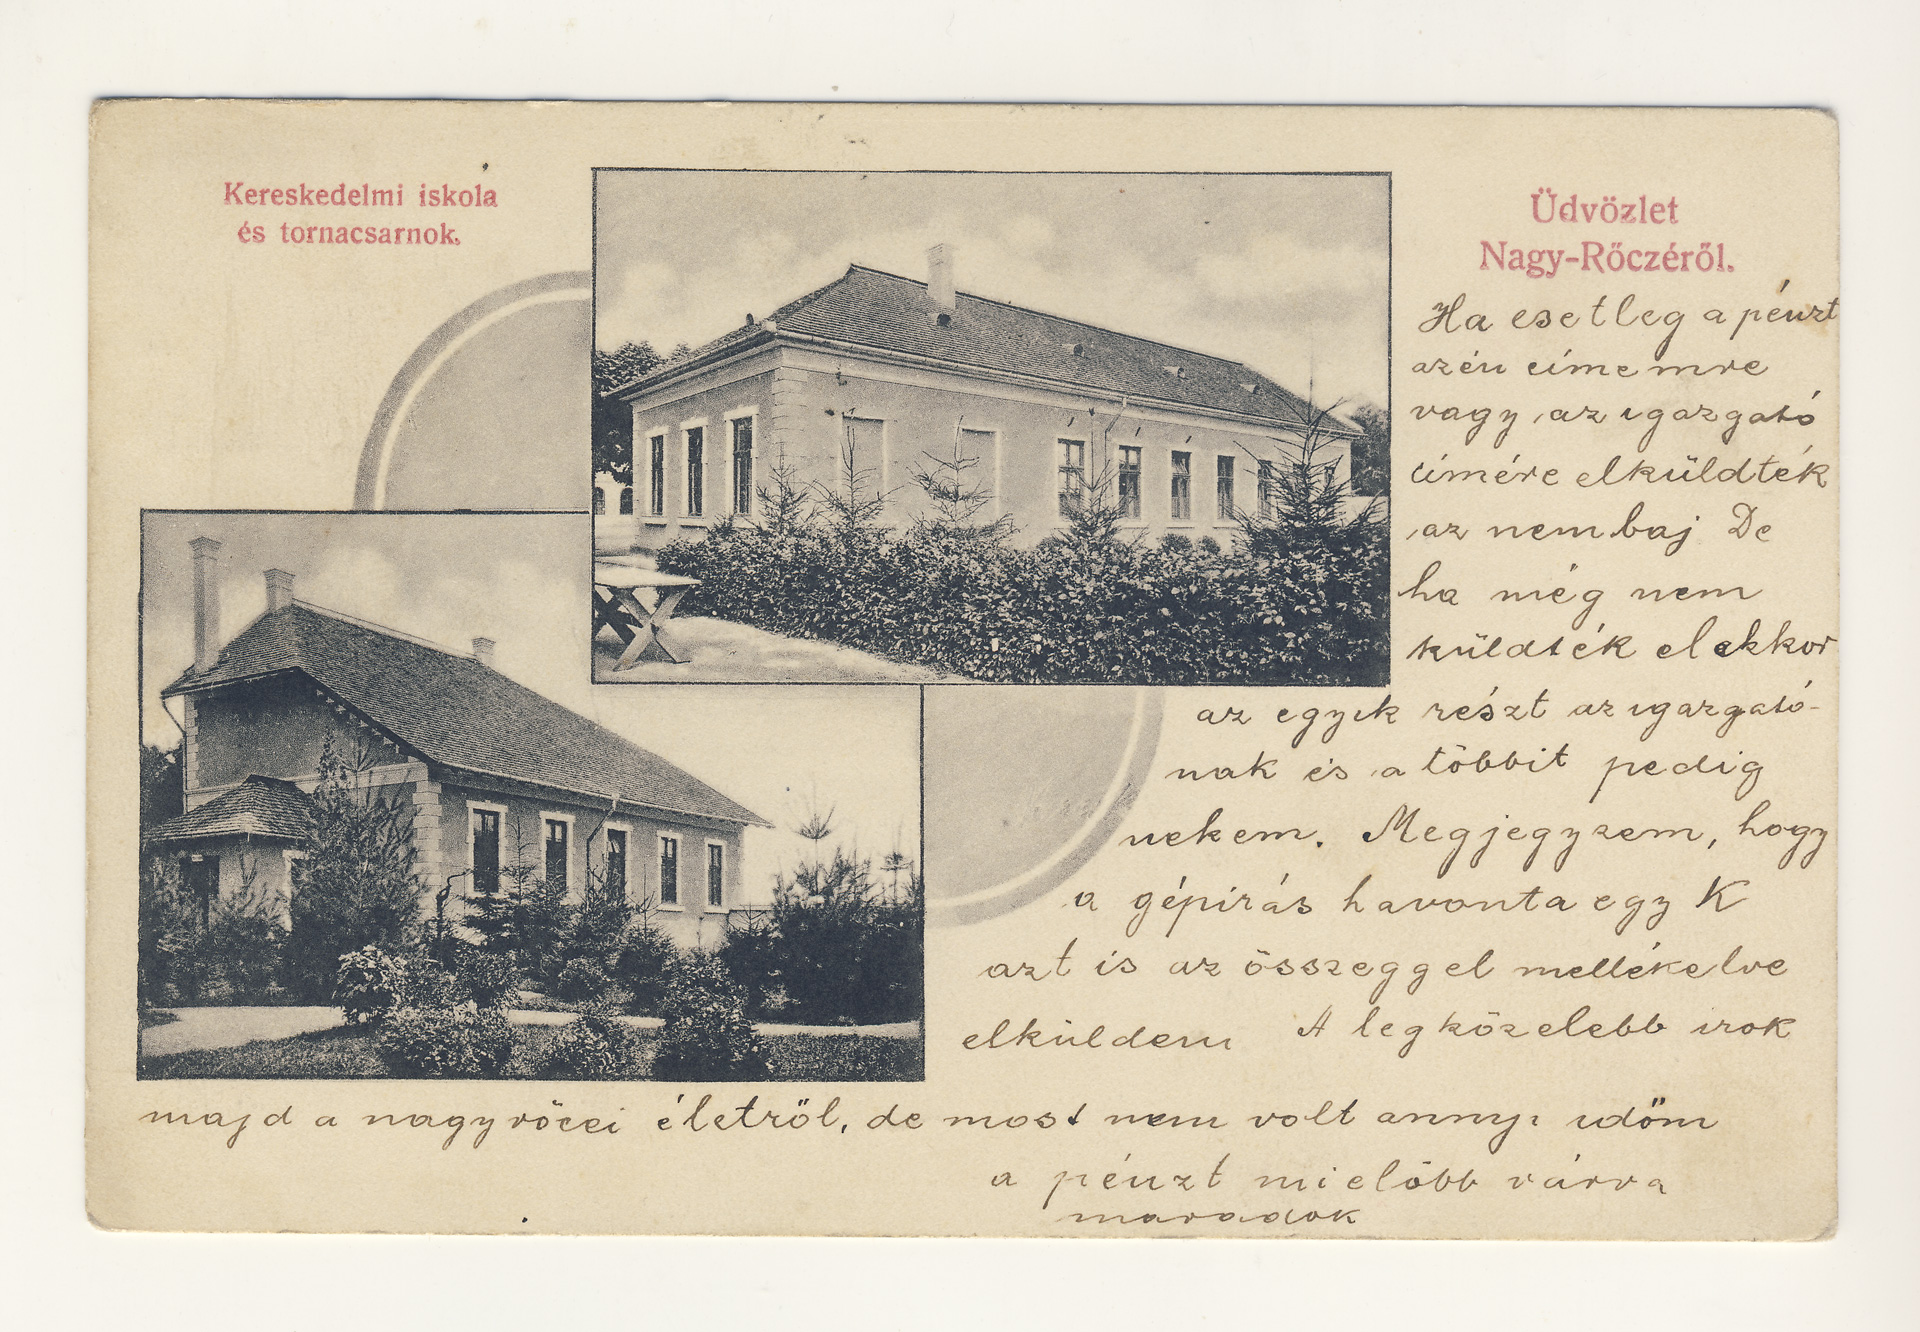 Kereskedelmi iskola
és tornacsarnok.
Üdvözlet
Nagy-Rőczéről.
Ha esetleg a pénzt
az én címemre
vagy az igazgató
címére elküldték
az nem baj De
ha még nem
küldték el akkor
az egyik részt az igazgató-
nak és a többit pedig
nekem. Megjegyzem, hogy
a gépirás havonta egy K
azt is az összeggel mellékelve
elküldeni A legközelebb irok
majd a nagyrőcei életről, de most nem volt annyi időm
a pénzt mielőbb várva
maradok